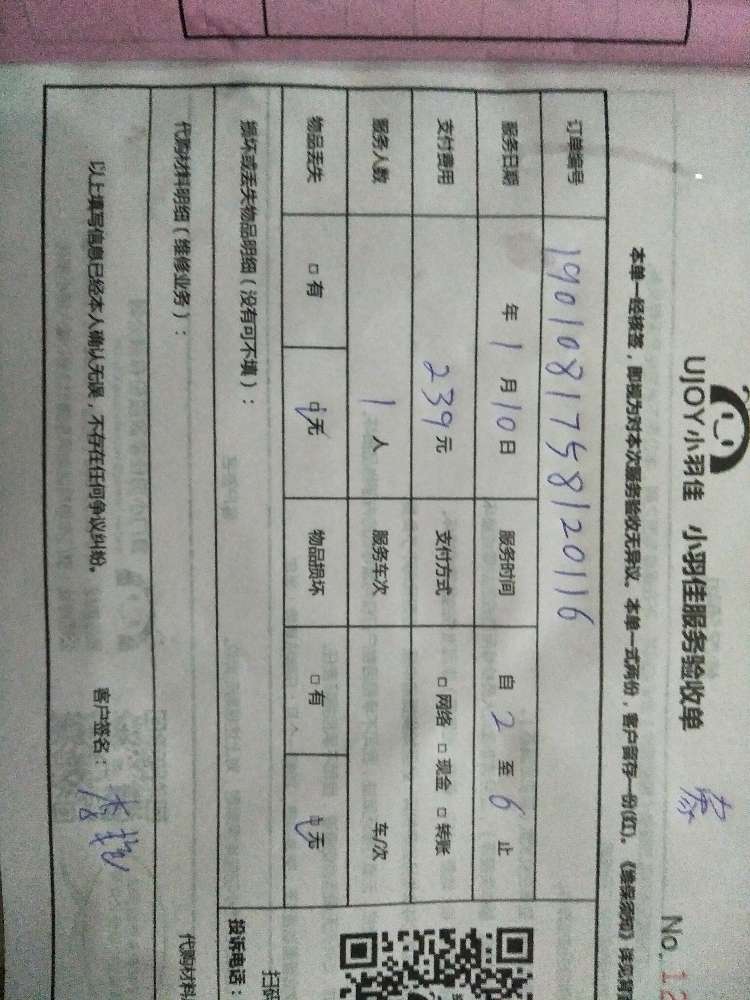 UJOY小羽佳 小羽佳服务验收单
家
No. 12
本单一经核签，即视为对本次服务验收无异议。本单一式两份，客户留存一份(红)。《维保须知》详见背
订单编号 1901081758120116
服务日期 年 1 月 10 日 服务时间 自 2 至 6 止
支付费用 239 元 支付方式 □ 网络 □ 现金 □ 转账
服务人数 1 人 服务车次 车/次
物品丢失 □ 有 □ 无 物品损坏 □ 有 □ 无
损坏或丢失物品明细（没有可不填）：
投诉电话：
扫码
代购材料明细（维修业务）：
代购材料
以上填写信息已经本人确认无误，不存在任何争议纠纷。 客户签名：